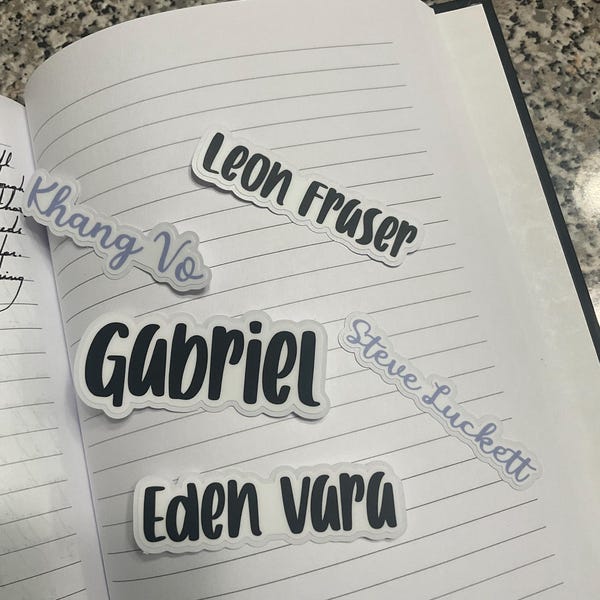 Leon Fraser
Khang Vo
Gabriel
Steve Luckett
Eden Vara